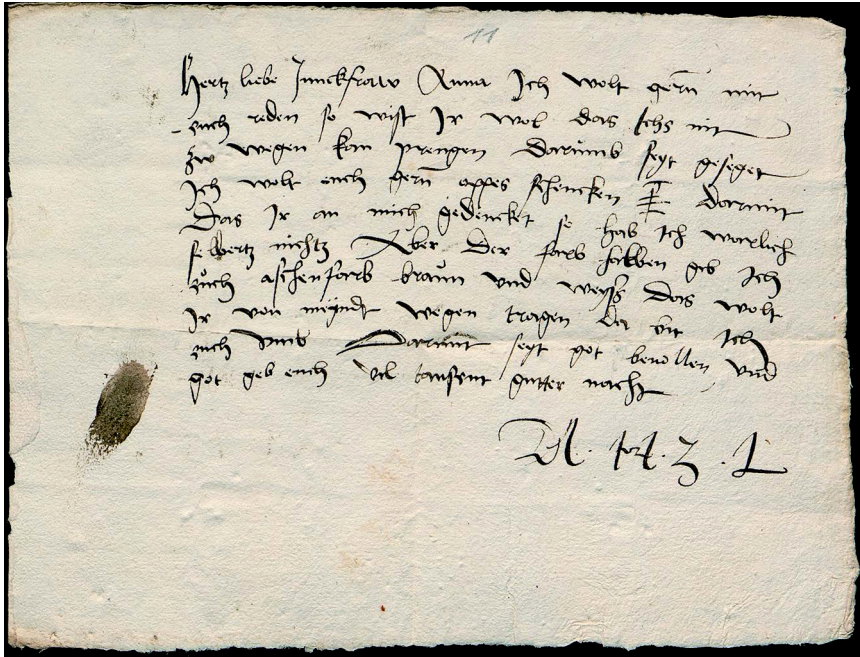 11
Hertz liebe Junckfraw Anna Ich wolt gern mit
euch reden so wist Ir wol das Ichs nit
zw wegen kan prengen darumb seyt geseget
Ich wolt euch gern oppes schencken darmit
Das Ir an mich gedencket so hab Ich warlich
selbertz nichtz Aber der farb halben geb Ich
euch aschenfarb braun und weyss das wolt
Ir von wegen tragen da bit Ich
euch umb Darmit seyt got beuollen vnd
got geb euch vil tausent gutter nacht